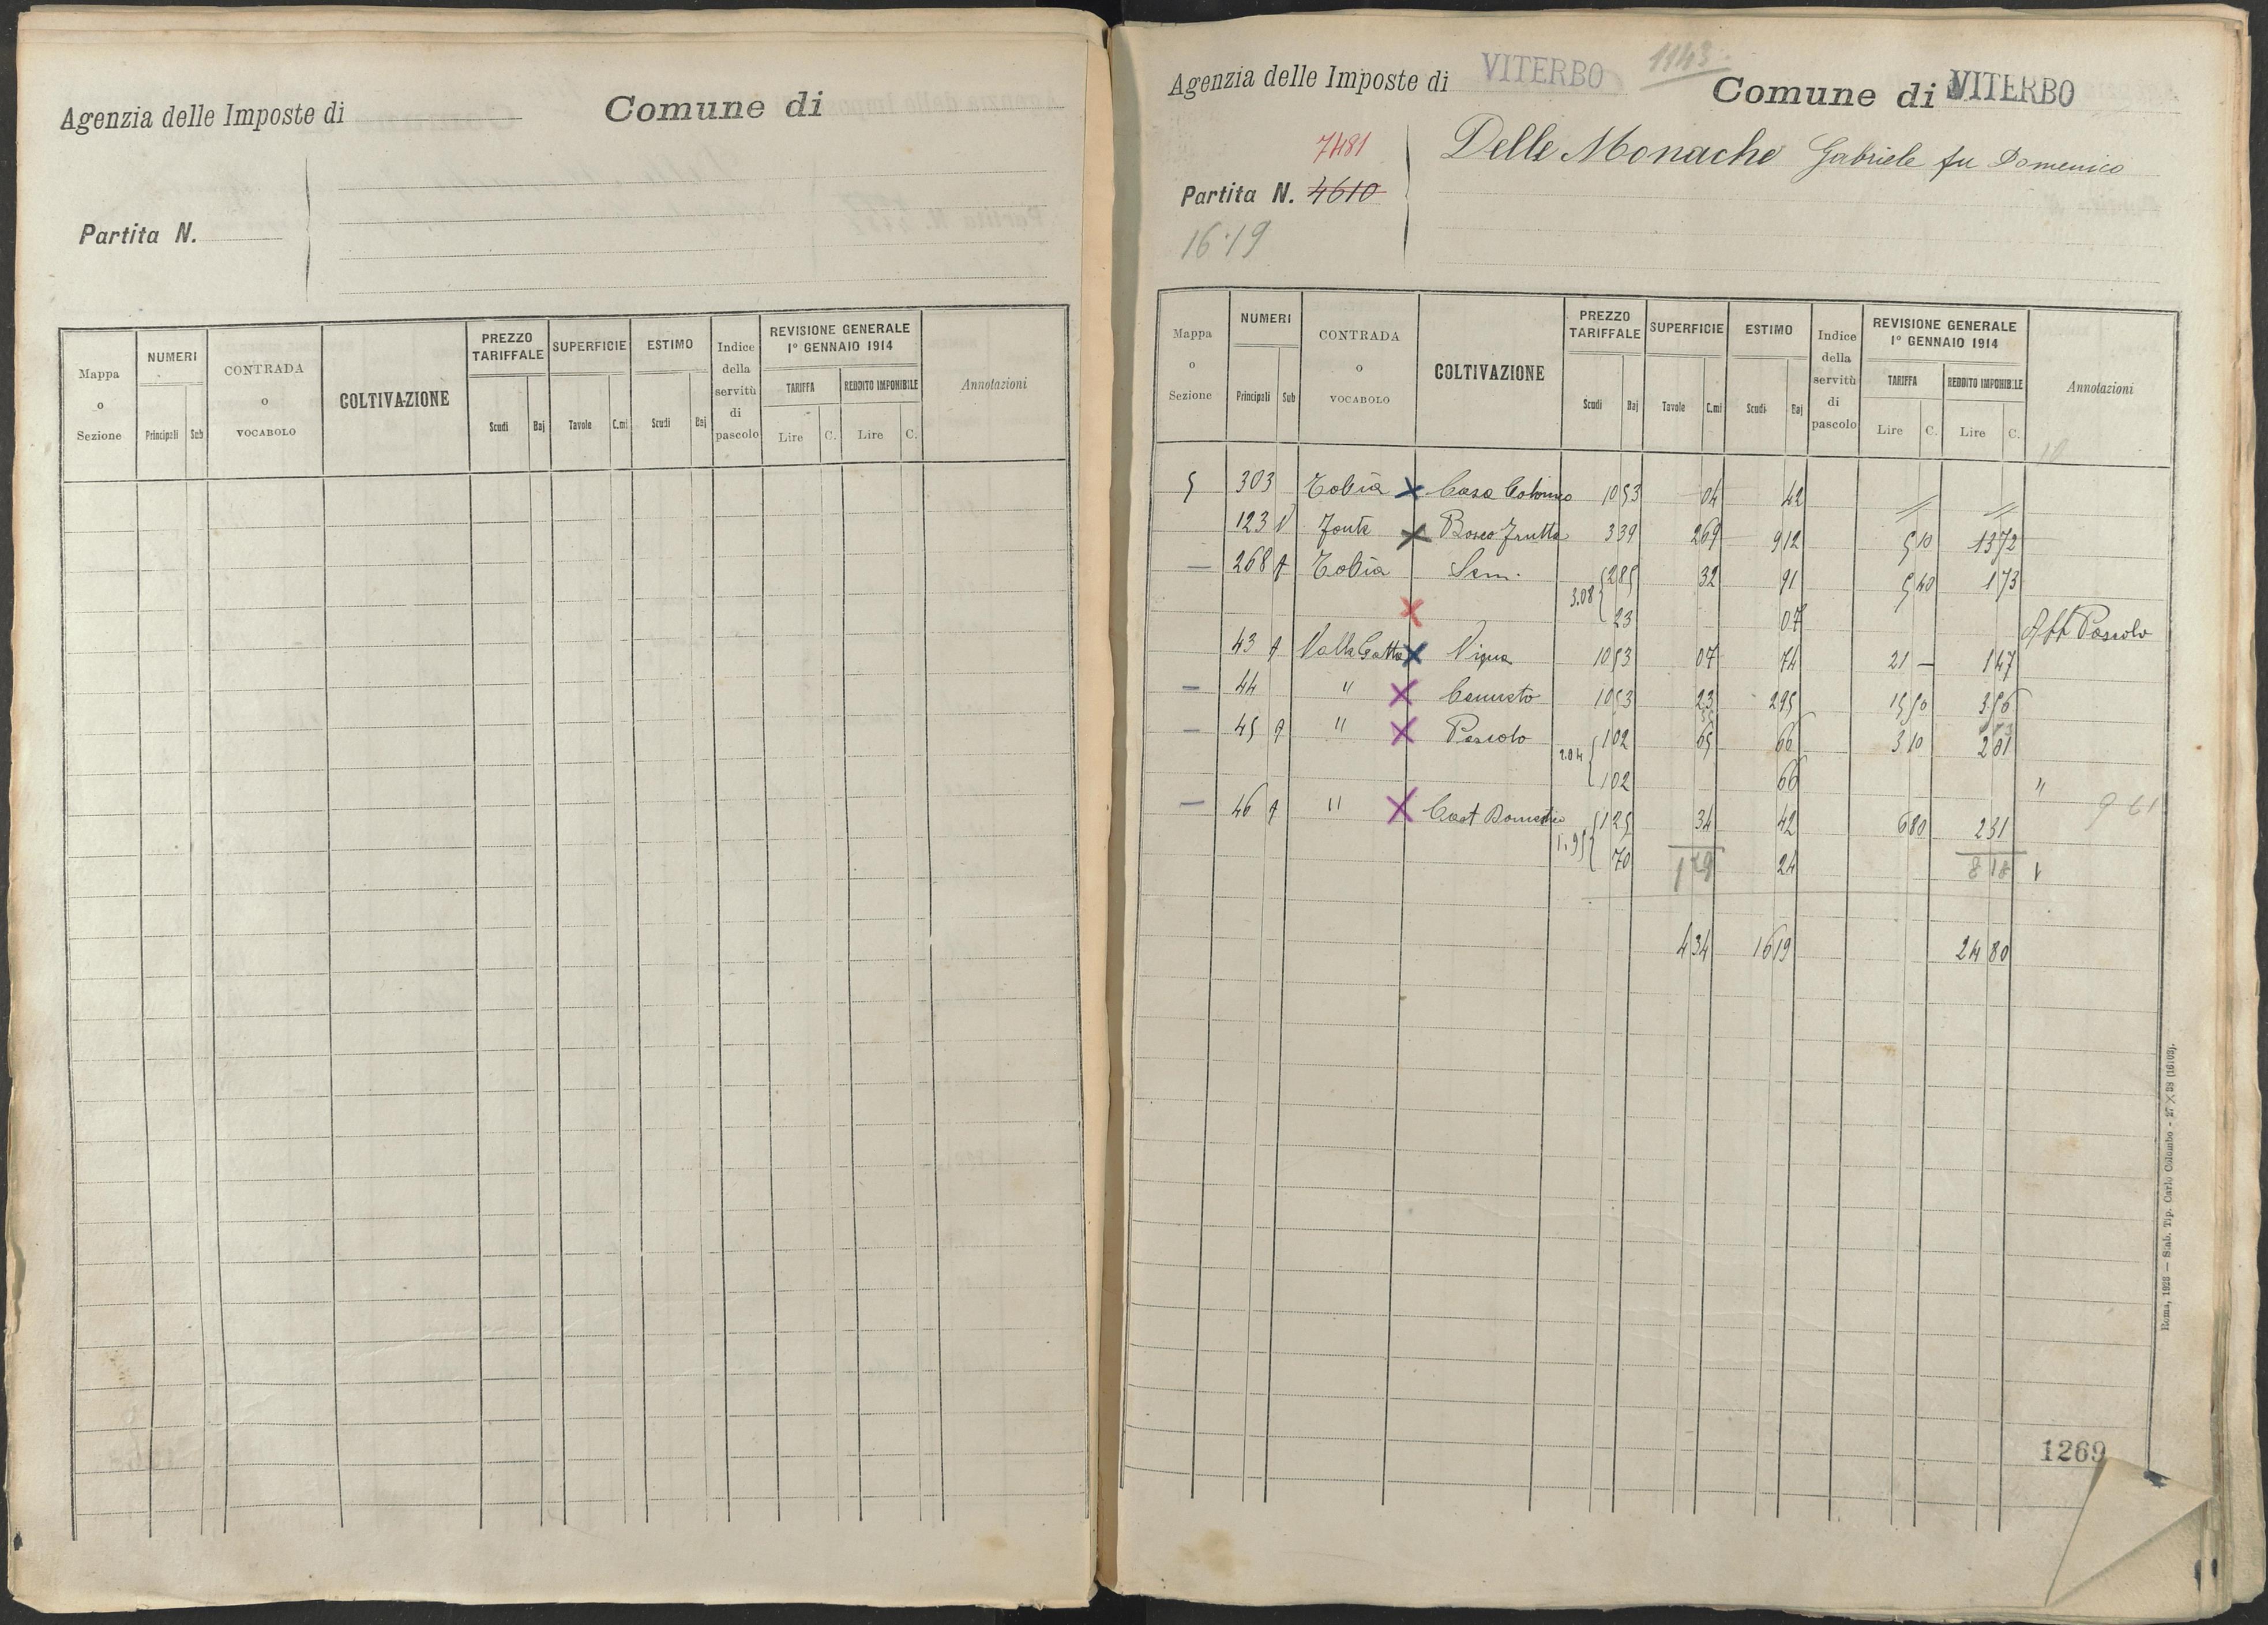 Agenzia delle Imposte di
Comune di
Partita N.
Mappa o Sezione
NUMERI
Principali Sub
CONTRADA o VOCABOLO
COLTIVAZIONE
PREZZO TARIFFALE
Scudi Baj
SUPERFICIE
Tavole C.mi
ESTIMO
Scudi Baj
Indice della servitù di pascolo
REVISIONE GENERALE 1° GENNAIO 1914
TARIFFA REDDITO IMPONIBILE
Lire C. Lire C.
Annotazioni
Agenzia delle Imposte di VITERBO
1143
Comune di VITERBO
7481
Partita N. 4610
Delle Monache Gabriele fu Domenico
16.19
Mappa o Sezione
NUMERI
Principali Sub
CONTRADA o VOCABOLO
COLTIVAZIONE
PREZZO TARIFFALE
Scudi Baj
SUPERFICIE
Tavole C.mi
ESTIMO
Scudi Baj
Indice della servitù di pascolo
REVISIONE GENERALE 1° GENNAIO 1914
TARIFFA REDDITO IMPONIBILE
Lire C. Lire C.
Annotazioni
10
5 303 Tobia x Casa Colonica 10 53 04 42 // //
123 Fonte x Bosco frutto 3 39 2 69 9 12 5 10 13 72
— 268 A Tobia Sem. 3.08 { 2 85 32 91 5 40 1 73
x 23 07 Aff Pascolo
43 A Valle Gatta x Vigna 10 53 07 74 21 — 1 47
— 44 " x Canneto 10 53 23 2 95 15 50 3 56
— 45 A " x Pascolo 2.04 { 1 02 65 66 3 10 2 01
1 02 66 "
— 46 A " x Cast Domestico 1.95 { 1 25 34 42 6 80 2 31
70 24 8 18
4 34 16 19 24 80
Roma, 1923 — Stab. Tip. Carlo Colombo - 27 X 38 (16103).
1269